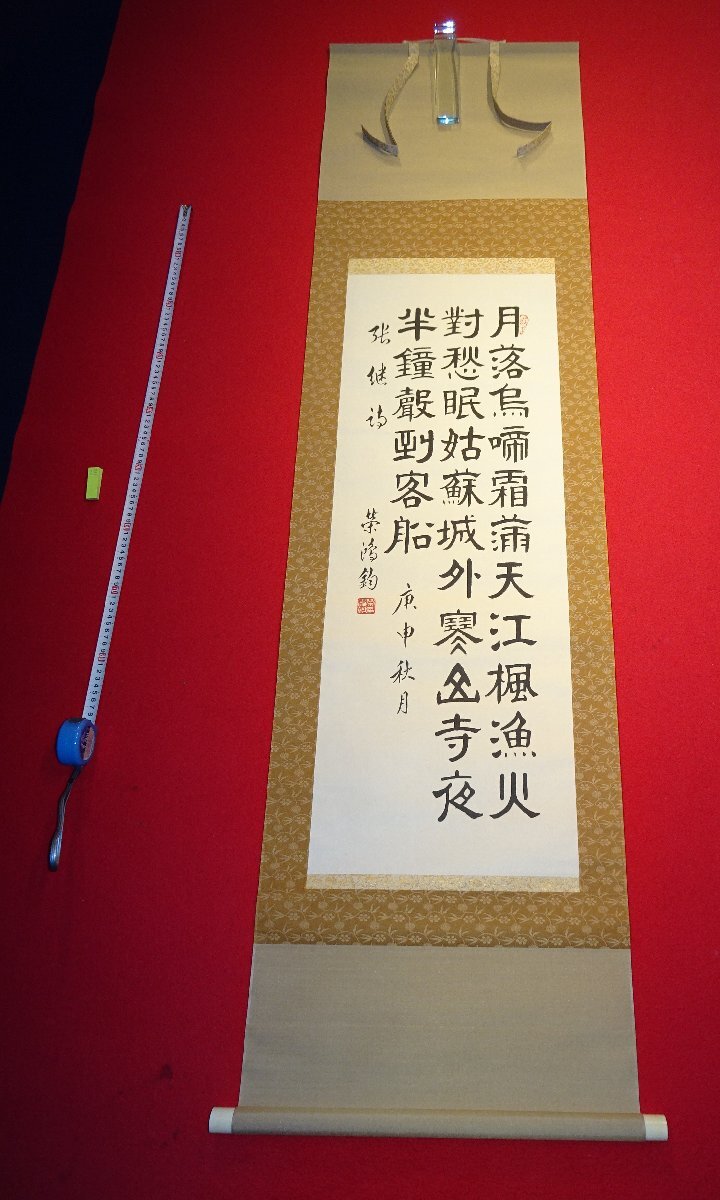 月落烏啼霜滿天江楓漁火
對愁眠姑蘇城外寒山寺夜
半鐘聲到客船
庚申秋月
张继诗
榮鴻鈞